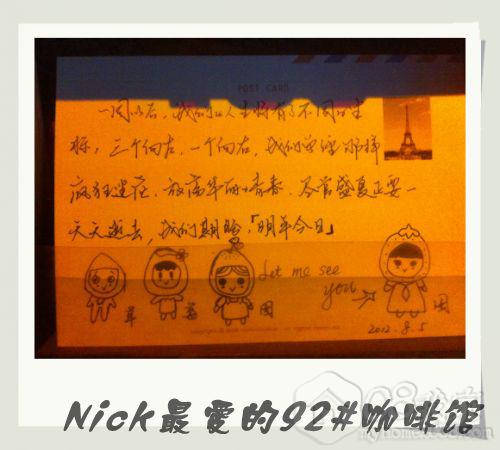 POST CARD
一周以后，我们的人生将有了不同的坐
标，三个向左，一个向右，我们曾经那样
疯狂进在、放高华丽的青春、尽管盛夏正要一
天天逝去，我们期盼，「明年今日」
Let me see
you
草 莓 团 团
2012.8.5
Nick最爱的92#咖啡馆